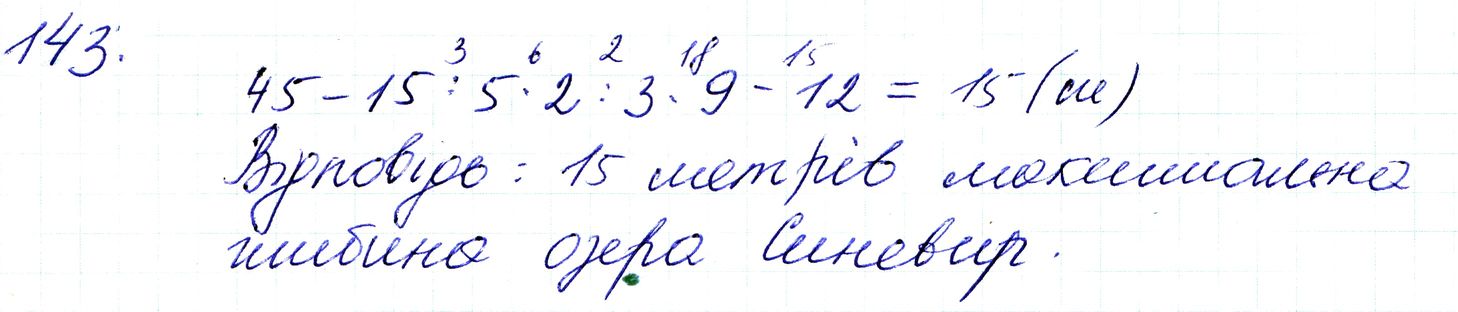 143.
3 6 2 18 15
45 - 15 : 5 · 2 : 3 · 9 - 12 = 15 (м)
Відповідь : 15 метрів максимальна
глибина озера Синевир.